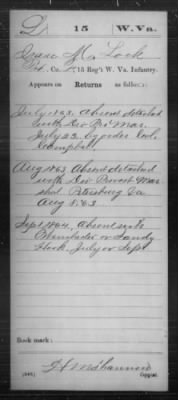 L 15 W. Va.
Isaac M. Lock
Pvt. Co. 15 Reg't W. Va. Infantry.
Appears on Returns as follows:
July 1863. Absent detached
with Div Pro Mar.
July 22 by order Col.
Campbell
Aug 1863 Absent detached
with Div Provost Mar
shal. Petersburg Va
Aug 8. 63
Sept 1864. Absent sick
or Sandy
Hook. July or Sept
Book mark:
Copyist.